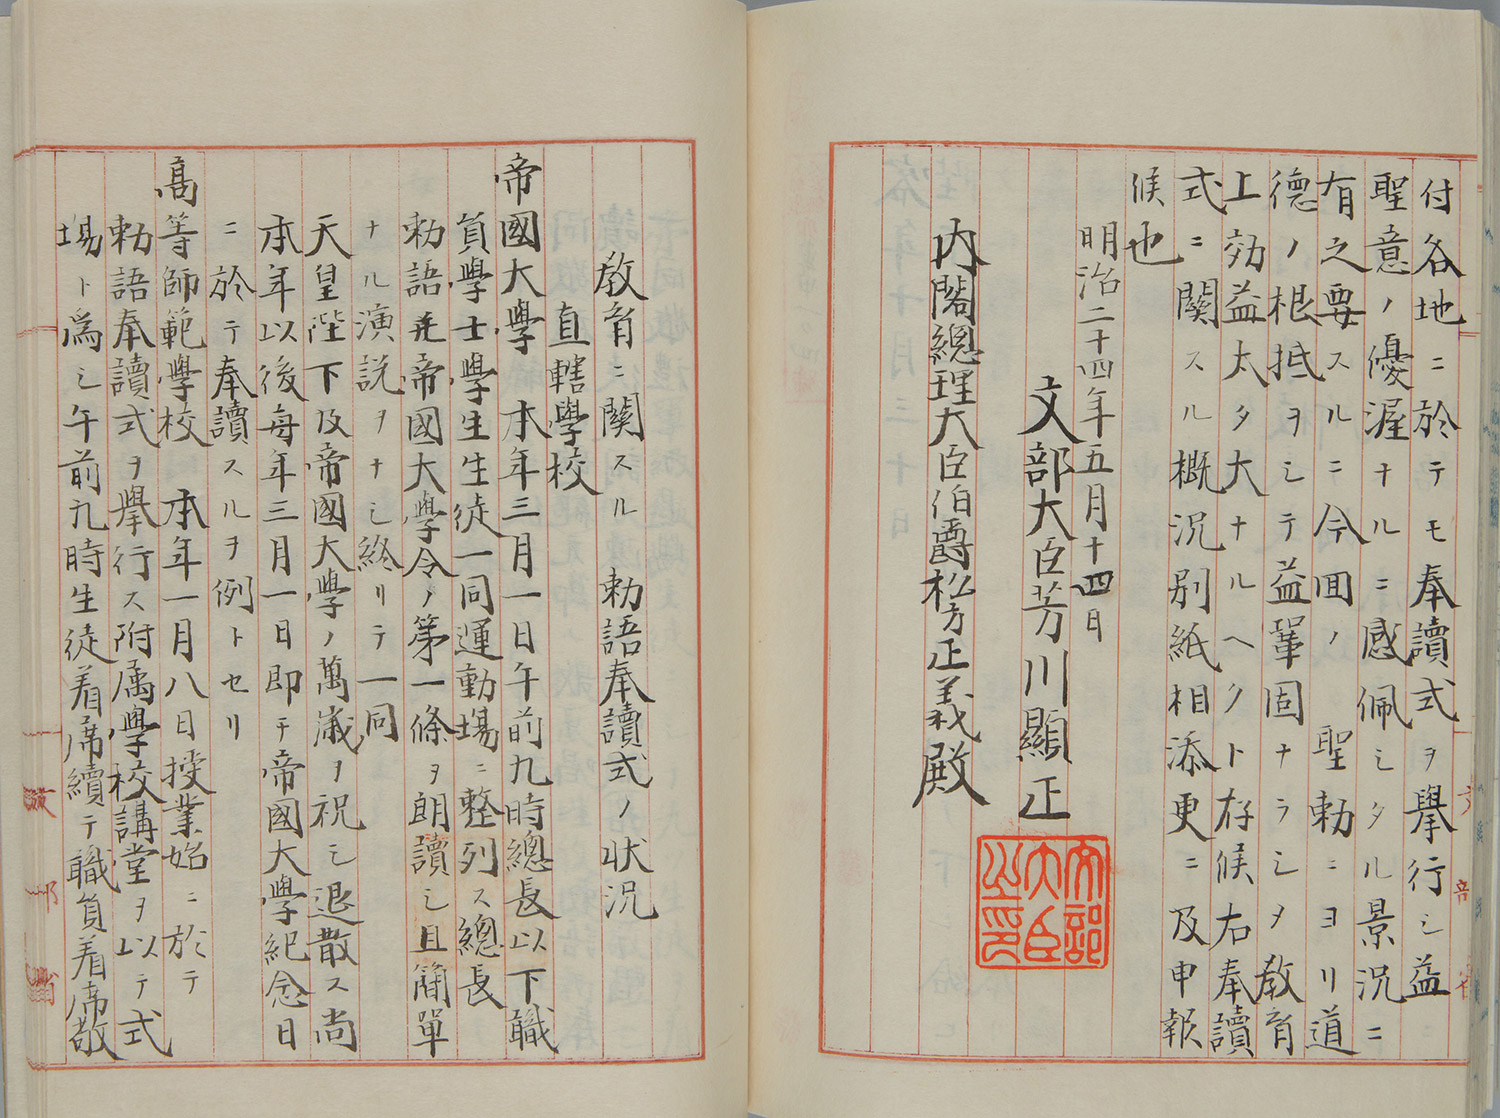 付各地ニ於テモ奉讀式ヲ擧行シ益
聖意ノ優渥ナルニ感佩シタル景況ニ
有之要スルニ今回ノ　聖勅ニヨリ道
德ノ根抵ヲシテ益鞏固ナラシメ教育
上効益太タ大ナルヘクト存候右奉讀
式ニ關スル概況別紙相添更ニ及申報
候也
明治二十四年五月十四日
文部大臣芳川顯正
文部大臣之印
内閣總理大臣伯爵松方正義殿
教育ニ關スル　勅語奉讀式ノ状況
直轄學校
帝國大學　本年三月一日午前九時總長以下職
員學士學生生徒一同運動場ニ整列ス總長
勅語幷帝國大學令ノ第一條ヲ朗讀シ且簡單
ナル演説ヲナシ終リテ一同
天皇陛下及帝國大學ノ萬歳ヲ祝シ退散ス尚
本年以後毎年三月一日即チ帝國大學紀念日
ニ於テ奉讀スルヲ例トセリ
高等師範學校　本年一月八日授業始ニ於テ
勅語奉讀式ヲ擧行ス附属學校講堂ヲ以テ式
場ト爲シ午前九時生徒着席續テ職員着席敬
文部省